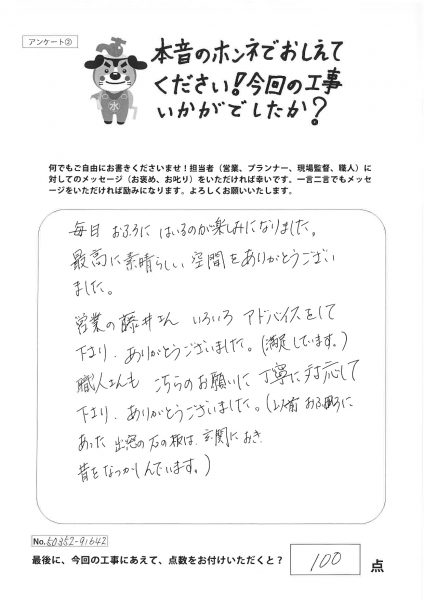 アンケート③
本音のホンネでおしえて
ください!今回の工事
いかがでしたか?
水
何でもご自由にお書きくださいませ!担当者(営業、プランナー、現場監督、職人)に
対してのメッセージ(お褒め、お叱り)をいただければ幸いです。一言二言でもメッセ
ージをいただければ励みになります。よろしくお願いいたします。
毎日 おふろに はいるのが楽しみになりました。
最高に素晴らしい空間をありがとうござい
ました。
営業の藤井さん いろいろ アドバイスをして
下さり、ありがとうございました。(満足しています。)
職人さんも こちらのお願いに丁寧に対応して
下さり、ありがとうございました。(以前 お風ろに
あった 出窓の石の板は、玄関におき
昔をなつかしんでいます。)
No.50352-91642
最後に、今回の工事にあえて、点数をお付けいただくと? 100 点